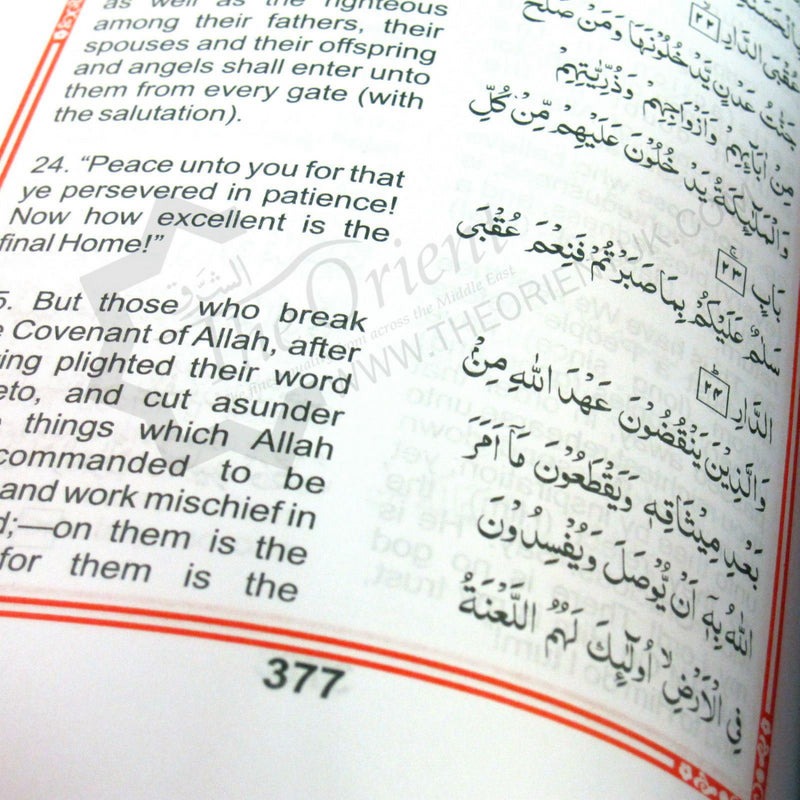 as well as the righteous
among their fathers, their
spouses and their offspring
and angels shall enter unto
them from every gate (with
the salutation).
24. “Peace unto you for that
ye persevered in patience!
Now how excellent is the
final Home!”
5. But those who break
e Covenant of Allah, after
ing plighted their word
eto, and cut asunder
things which Allah
commanded to be
and work mischief in
d;—on them is the
for them is the
عُقْبَى الدَّارِ ﴿٢٢﴾
جَنّٰتُ عَدْنٍ يَّدْخُلُوْنَهَا وَمَنْ صَلَحَ
مِنْ اٰبَآئِهِمْ وَاَزْوَاجِهِمْ وَذُرِّيّٰتِهِمْ
وَالْمَلٰٓئِكَةُ يَدْخُلُوْنَ عَلَيْهِمْ مِّنْ كُلِّ
بَابٍ ﴿٢٣﴾
سَلٰمٌ عَلَيْكُمْ بِمَا صَبَرْتُمْ فَنِعْمَ عُقْبَى
الدَّارِ ﴿٢٤﴾
وَالَّذِيْنَ يَنْقُضُوْنَ عَهْدَ اللّٰهِ مِنْۢ
بَعْدِ مِيْثَاقِهٖ وَيَقْطَعُوْنَ مَآ اَمَرَ
اللّٰهُ بِهٖٓ اَنْ يُّوْصَلَ وَيُفْسِدُوْنَ
فِى الْاَرْضِ ۙ اُولٰٓئِكَ لَهُمُ اللَّعْنَةُ
377
الشرق
The Orient
WWW.THEORIENTUK.COM